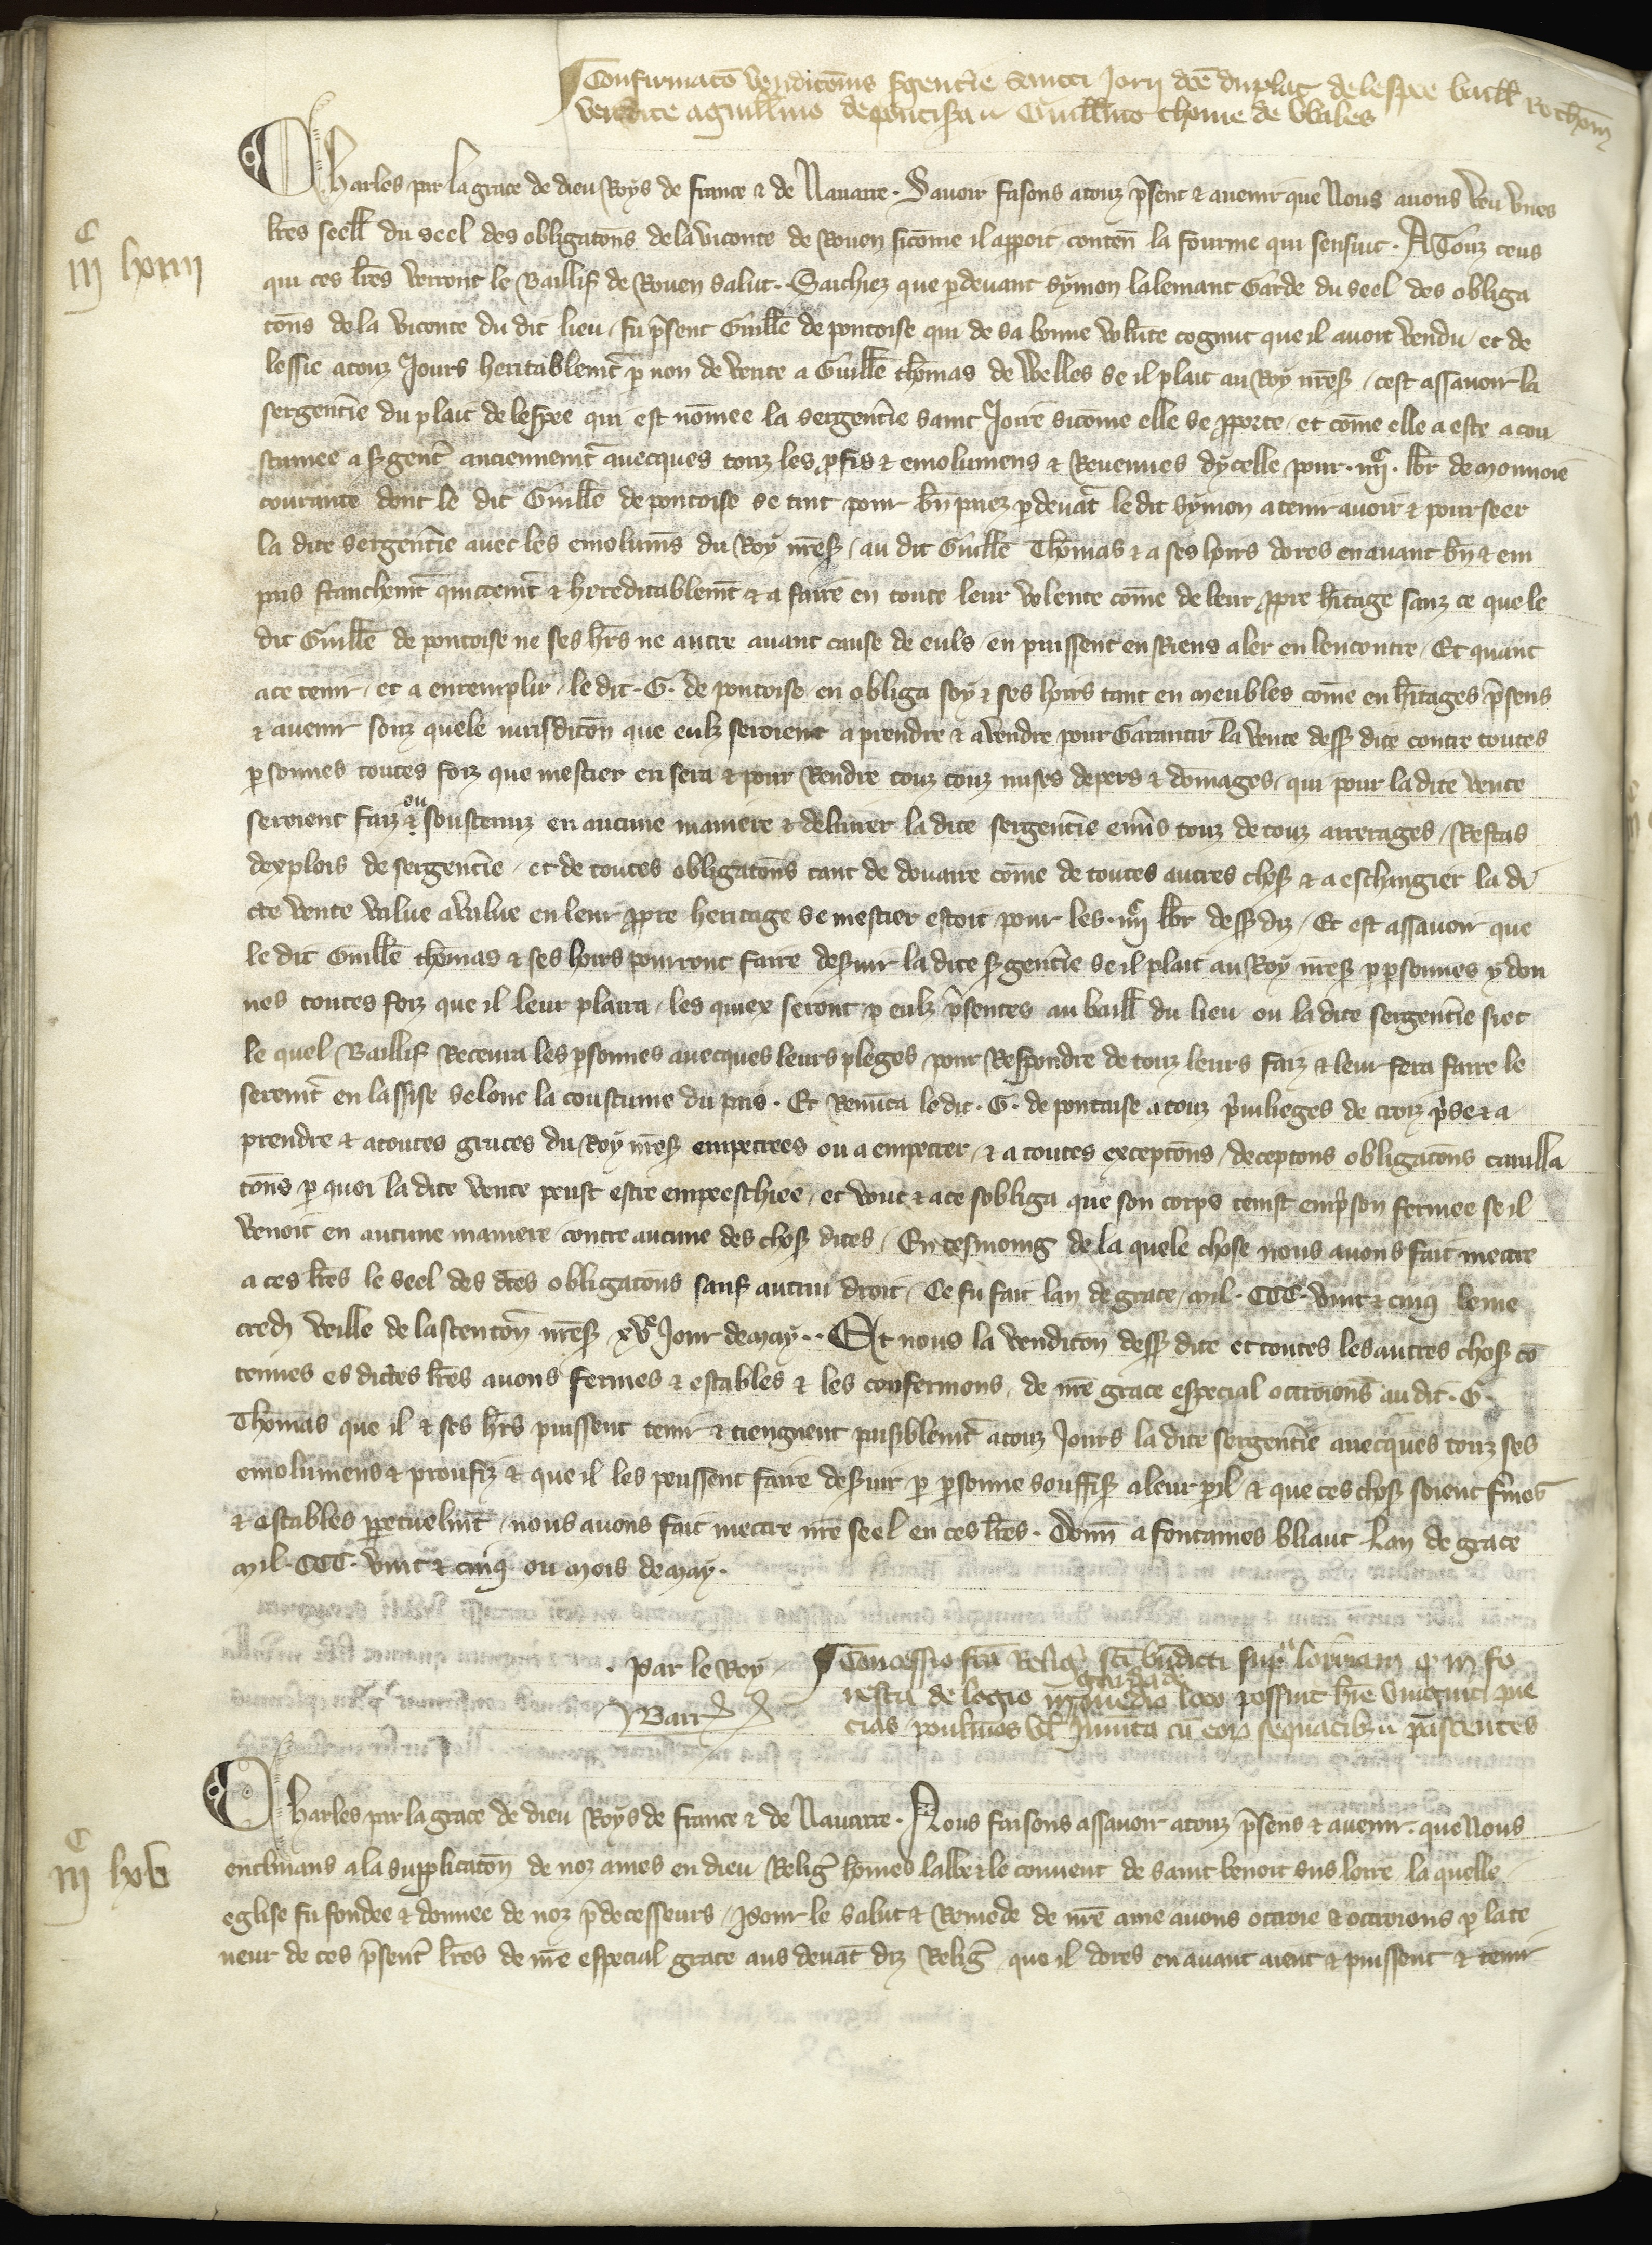 Confirmatō vendicōnis s̄gent̄ie sancti Jorii dc̄e du plait de lespee baill̄ Rothom̄
vendite a guill̄mo de pontisara Guill̄mo thome de Welles
Charles par la grace de dieu Roys de france & de Nauarre. Sauoir faisons a touz p̄sent & auenir que Nous auons veu vnes
l̄res seell̄ du seel des obligatōns de la viconte de Rouen sicōme il apparoit conten̄ la fourme qui sensuit. A Touz ceus
iijC lxiiij
qui ces l̄res verront le Baillif de Rouen salut. Saichiez que p̄deuant symon lalemant Garde du seel des obliga
tōns de la viconte du dit lieu, fu p̄sent Guill̄e de pontoise qui de sa bonne volūte cognut que il auoit vendu et de
lessie a touz Jours heritablem̄t p̄ non de vente a Guill̄e thomas de Welles se il plait au Roy n̄res̄, cest assauoir la
sergent̄ie du plait de lespee qui est nōmee la sergent̄ie saint Jorre sicōme elle se p̄porte, et cōme elle a este acou
stumee a s̄gent̄ anciennem̄t auecques touz les p̄fis & emolumens & Reuenues dycelle pour .iiijC. lb̄r de monnoie
courante dont le dit Guill̄e de pontoise se tint pour bn̄ paiez p̄deuāt le dit symon a tenir auoir & pourseer
la dite sergent̄ie auec les emolum̄s du Roy n̄res̄, au dit Guill̄e Thomas & a ses hoirs dores en auant bn̄ & em
pais franchem̄t quictem̄t & hereditablem̄t & a faire en toute leur volente cōme de leur p̄pre h̄itage sanz ce que le
dit Guill̄e de pontoise ne ses h̄rs ne autre aiant cause de euls, en puissent en Riens aler en lencontre, Et quant
a ce tenir, et a enterinplir, le dit .G. de pontoise en obliga soy & ses hoirs tant en meubles cōme en h̄itages p̄sens
& auenir souz quele iurisditōn que eulz seroient a prendre & a vendre pour Garantir la vente dess̄ dite contre toutes
p̄sonnes toutes foiz que mestier en sera & pour Rendre touz couz mises depers & domages, qui pour la dite vente
seroient faiz & ou soustenuz en aucune maniere & deliurer la dite sergent̄ie en̄us touz de touz arrerages, Restas
dexplois de sergent̄ie, et de toutes obligatōns tant de douaire cōme de toutes autres chos̄ & a eschangier la di
cte vente value a value en leur p̄pre heritage se mestier estoit pour les .iiijC lb̄r dess̄ diz, Et est assauoir que
le dit Guill̄e thomas & ses hoirs pourront faire des̄uir la dite s̄gent̄ie se il plait au Roy n̄res̄ p̄ p̄sonnes ydon
nes toutes foiz que il leur plaira, les quiex seront p̄ eulz p̄sentes au baill̄ du lieu ou la dite sergent̄ie siet
le quel Baillif Receura les p̄sonnes auecques leurs pleges pour Respondre de touz leurs faiz & leur fera faire le
serem̄t en lassise selonc la coustume du pais. Et Renūca le dit .G. de pontoise a touz p̄uilieges de croiz p̄se & a
prendre & a toutes graces du Roy n̄res̄ empetrees ou a empetrer, & a toutes exceptōns, deceptōns obligatōns cauilla
tōns p̄ quoi la dite vente peust estre empeeschiee, et vout & a ce sobliga que son corps tenist en p̄son fermee se il
venoit en aucune maniere contre aucune des chos̄ dites, En tesmoing de la quele chose nous auons fait mectre
a ces l̄res le seel des dc̄es obligatōns sauf autrui droit, Ce fu fait lan de grace, mil. CCC. vint & cinq le me
credy veille de lascentōn n̄res̄ xve Jour de may.. Et nous la venditōn dess̄ dite et toutes les autres chos̄ cō
tenues es dictes l̄res auons fermes & estables & les confermons, de n̄re grace especial octroions au dit .G.
Thomas que il & ses h̄rs puissent tenir & tiengnent paisiblem̄t a touz Jours la dite sergent̄ie auecques touz ses
emolumens & proufiz & que il les peussent faire des̄uir p̄ p̄sonne souffis̄ a leur p̄il & que ces chos̄ soient f̄mes
& estables p̄petuelm̄t, nous auons fait mectre n̄re seel en ces l̄res. Donn̄ a fontaines bliaut Lan de grace
mil. CCC. vint & cinq ou mois de may.
. par le Roy
Barr̄
Concessio fc̄a Relig̓ sc̄i bn̄dicti sup̄ ligerim q̄ in fo
resta de legio in quēdā gardiado loco possint h̄re viginti pue
cias poulinos vl̄ Jumēta cū eor̄ sequacib3 pascentes
Charles par la grace de dieu Roys de france & de Nauarre. Nous faisons assauoir a touz p̄sens & auenir. que Nous
iijC lxv
enclinans a la supplicatōn de noz ames en dieu Relig̓ hōmes labbe & le conuent de saint benoit sus loire la quelle
eglise fu fondee & donnee de noz p̄decesseurs, pour le salut & Remede de n̄re ame auons octroie & octroions p̄ la te
neur de ces p̄sent̄ l̄res de n̄re especial grace aus deuāt diz Relig̓ que il dores en auant aient & puissent & tenir